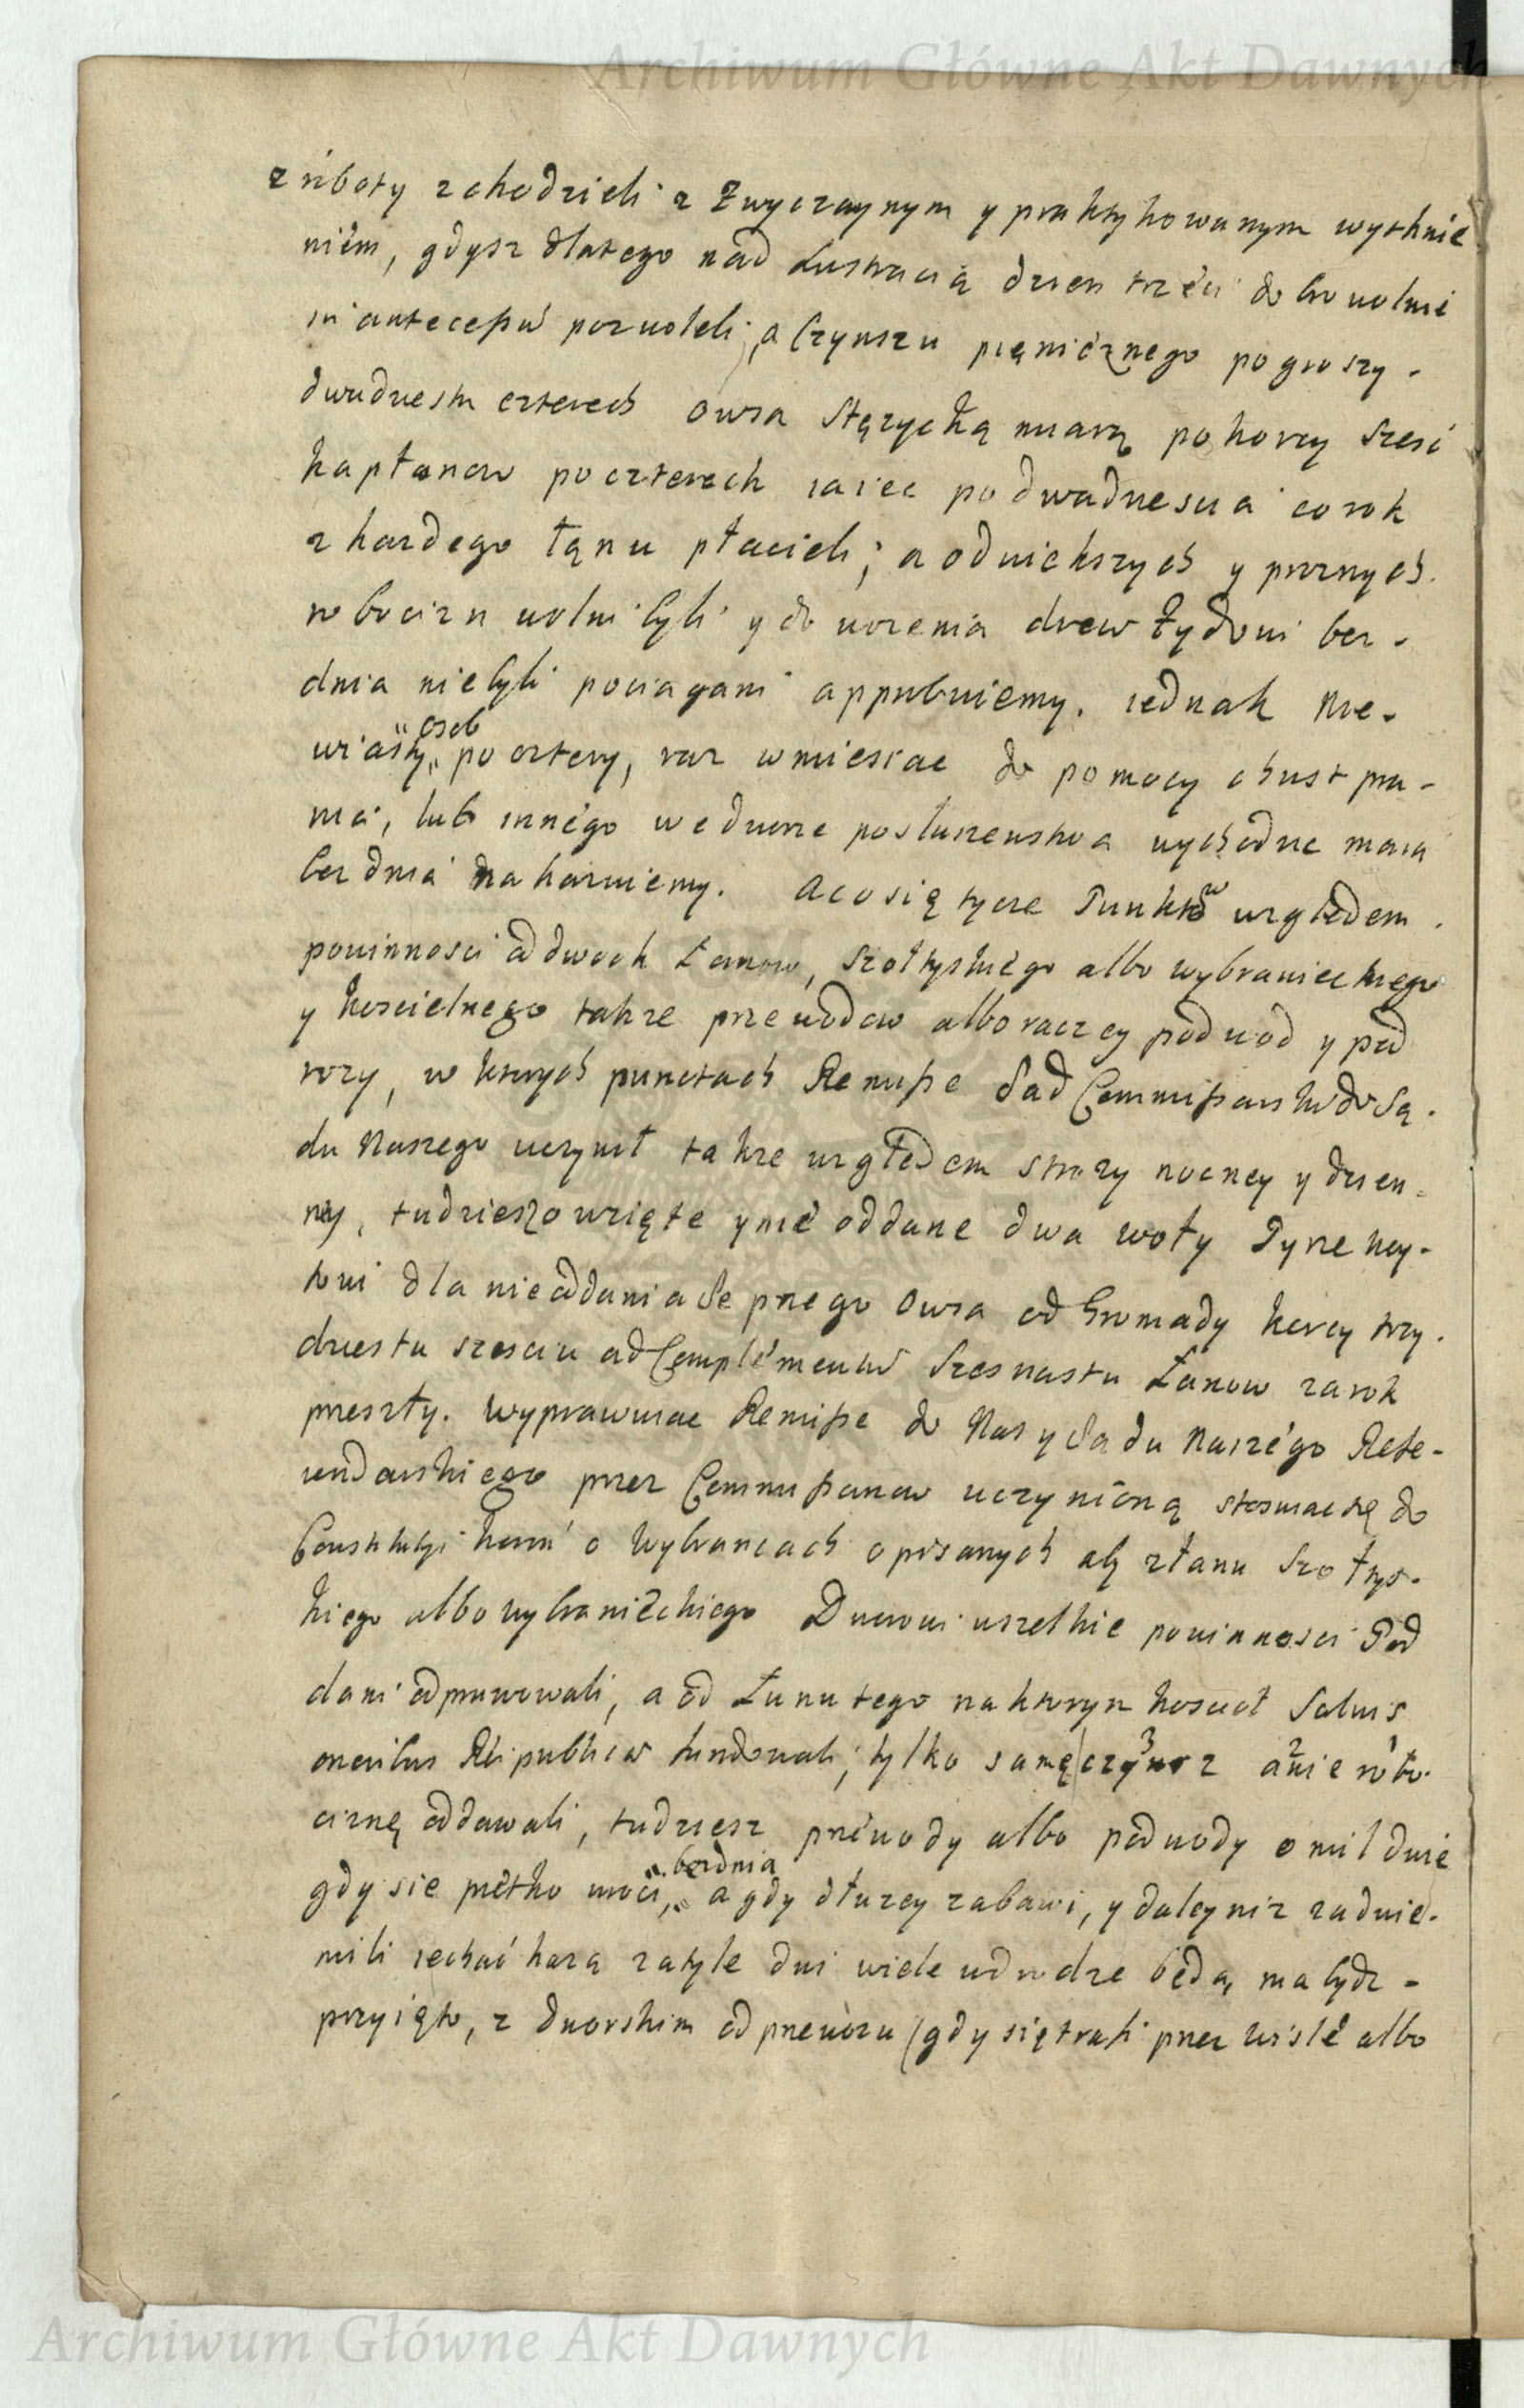 Archiwum Główne Akt Dawnych
z roboty zchodzieli z Zwyczaynym y praktykowanym wytknie
niem, gdysz dlatego nad Lustracią dzien trzeci dobrowolnie
in antecessu pozwoleli, a Czynszu pięnieznego po groszy
dwudziestu czterech owsa Stęzycką miarą po korcy szesc
kapłonow po czterech iaiec po dwadziescia co rok
z kazdego łanu płacieli; a od wiekszych y prznych
robocizn wolni byli y do wozenia drew Zydowi bez
dnia niebyli pociągani approbuiemy. iednak Nie-
wiasty „osob„ po cztery, raz w miesiac do pomocy chust pra-
nia, lub innego we dworze posłuszenstwa wychodzic maia
bez dnia nakazuiemy. A co się tycze Punktow względem
powinnosci od dwoch Łanow, Szołtyskiego albo wybranieckiego
y koscielnego takze przewodow albo raczey podwod y pod
rozy, w ktorych punctach Remisse Sad Commissarski do Są-
du Naszego uczynił takze względem strozy nocney y dzien-
ney, tudziesz o wzięte y nie oddane dwa woły
towi dla nieoddania Se pnego Owsa od Gromady korcy trzy-
dziestu szesciu ad Complementu Szesnastu Łanow za rok
przeszły. Wyprawuiac Remisse do Nas y Sadu Naszego Refe-
rendarskiego przez Commissarzow uczynioną stosuiac się do
Constitucyi o Wybrancach opisanych aby z łanu Szołtys-
kiego albo wybranieckiego Dworowi wszelkie powinnosci Pod
dani odprawowali, a od Łanu tego na ktorym kosciol Salvis
oneribus Reipublicae fundowali, tylko samę czynsz a nie robo-
ciznę oddawali, tudziesz przewody albo podwody o mil dwie
gdy sie prętko wroci, „bezdnia„ a gdy dłuzey zabawi, y daley niz za dwie
mili iechać kazą za tyle dni wiele w drodze będą, ma bydz
przyięto, z dworskim od przewozu (gdy się trafi przez Wisłe albo
Archiwum Główne Akt Dawnych